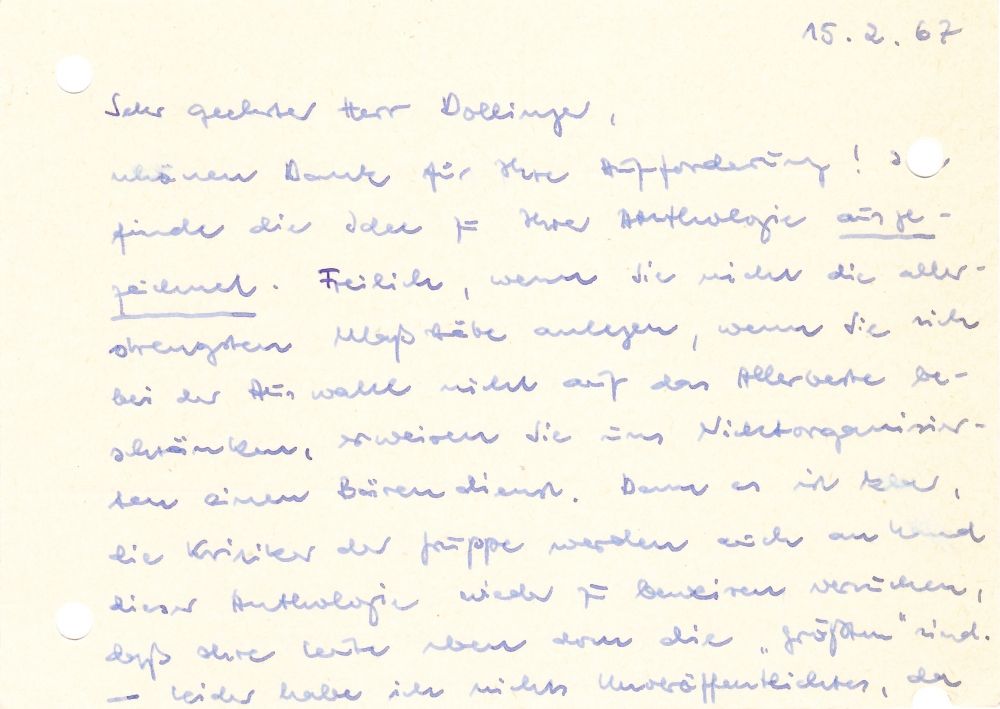 15. 2. 67
Sehr geehrter Herr Dollinger,
schönen Dank für Ihre Aufforderung! Ich
finde die Idee zu Ihrer Anthologie ausge-
zeichnet. Freilich, wenn Sie nicht die aller-
strengsten Maßstäbe anlegen, wenn Sie sich
bei der Auswahl nicht auf das Allerbeste be-
schränken, erweisen Sie uns Nichtorganisier-
ten einen Bärendienst. Denn es ist klar,
die Kritiker der Gruppe werden auch an Hand
dieser Anthologie wieder zu beweisen versuchen,
daß ihre Leute eben doch die „Größten" sind.
— Leider habe ich nichts Unveröffentlichtes, da